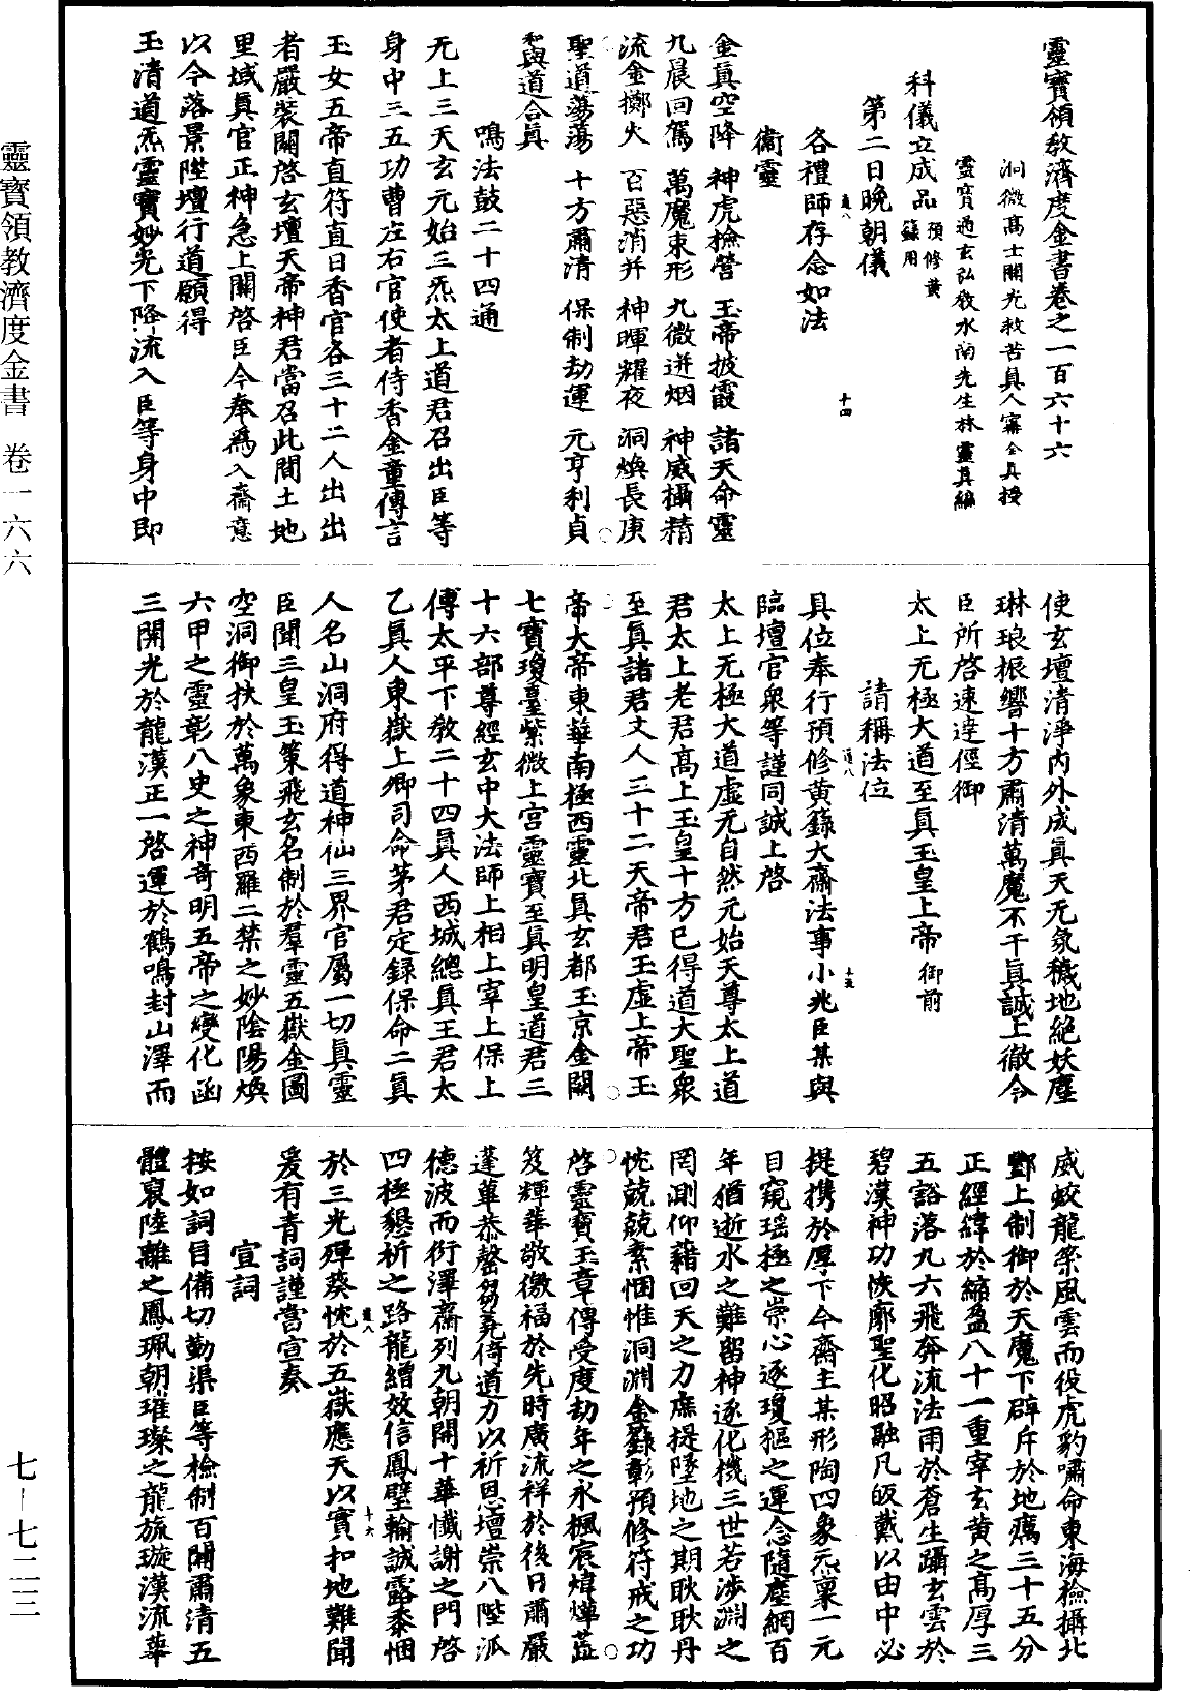 靈寶領教濟度金書卷之一百六十六
洞微高士開光救苦真人甯全真授
靈寶通玄弘教水南先生林靈真編
科儀立成品預修黃籙用
第二日晚朝儀
各禮師存念如法
衞靈
金真空降　神虎撿營　玉帝披霞　諸天命靈
九晨回駕　萬魔束形　九微迸烟　神威攝精
流金擲火　百惡消幷　神暉耀夜　洞煥長庚
聖道蕩蕩　十方肅清　保制劫運　元亨利貞
和與道合真
鳴法鼓二十四通
无上三天玄元始三炁太上道君召出臣等
身中三五功曹左右官使者侍香金童傳言
玉女五帝直符直日香官各三十二人出出
者嚴裝關啓玄壇天帝神君當召此間土地
里域真官正神急上關啓臣今奉爲入齋意
以今落景陞壇行道願得
玉清道炁靈寶妙光下降流入臣等身中即
使玄壇清淨內外成真天无氛穢地絕妖塵
琳琅振響十方肅清萬魔不干真誠上徹令
臣所啓速達徑御
太上无極大道至真玉皇上帝御前
請稱法位
具位奉行預修黃籙大齋法事小兆臣某與
臨壇官衆等謹同誠上啓
太上无極大道虛无自然元始天尊太上道
君太上老君高上玉皇十方已得道大聖衆
至真諸君丈人三十二天帝君玉虛上帝玉
帝大帝東華南極西靈北真玄都玉京金闕
七寶瓊臺紫微上宮靈寶至真明皇道君三
十六部尊經玄中大法師上相上宰上保上
傅太平下教二十四真人西城總真王君太
乙真人東嶽上卿司命茅君定錄保命二真
人名山洞府得道神仙三界官屬一切真靈
臣聞三皇玉策飛玄名制於羣靈五嶽金圖
空洞御扶於萬象東西羅二禁之妙陰陽煥
六甲之靈彰八史之神奇明五帝之變化函
三開光於龍漢正一啓運於鶴鳴封山澤而
威蛟龍策風雲而役虎豹嘯命東海檢攝北
酆上制御於天魔下辟斥於地癘三十五分
正經緯於縮盈八十一重宰玄黃之高厚三
五豁落九六飛奔流法雨於蒼生躡玄雲於
碧漢神功恢廓聖化昭融凡皈戴以由中必
提携於厚下今齋主某形陶四象炁稟一元
目窺瑶極之崇心逐瓊樞之運念隨塵網百
年猶逝水之難留神逐化機三世若涉淵之
罔測仰藉回天之力庶提墜地之期耿耿丹
忱兢兢素悃惟洞淵金籙彰預修符戒之功
啓靈寶玉章傳受度劫年之永楓宸煒燁蘂
笈輝華敬徼福於先時廣流祥於後日肅嚴
蓬蓽恭罄芻蕘倚道力以祈恩壇崇八陛沠
德波而衍澤齋列九朝開十華懺謝之門啓
四極懇祈之路龍繒效信鳳璧輸誠露黍悃
於三光殫葵忱於五嶽應天以實扣地難聞
爰有青詞謹當宣奏
宣詞
按如詞目備切勤渠臣等檢制百關肅清五
體裒陸離之鳳珮朝璀璨之龍旒璇漢流華
靈寶領教濟度金書　卷一六六
七—七二三